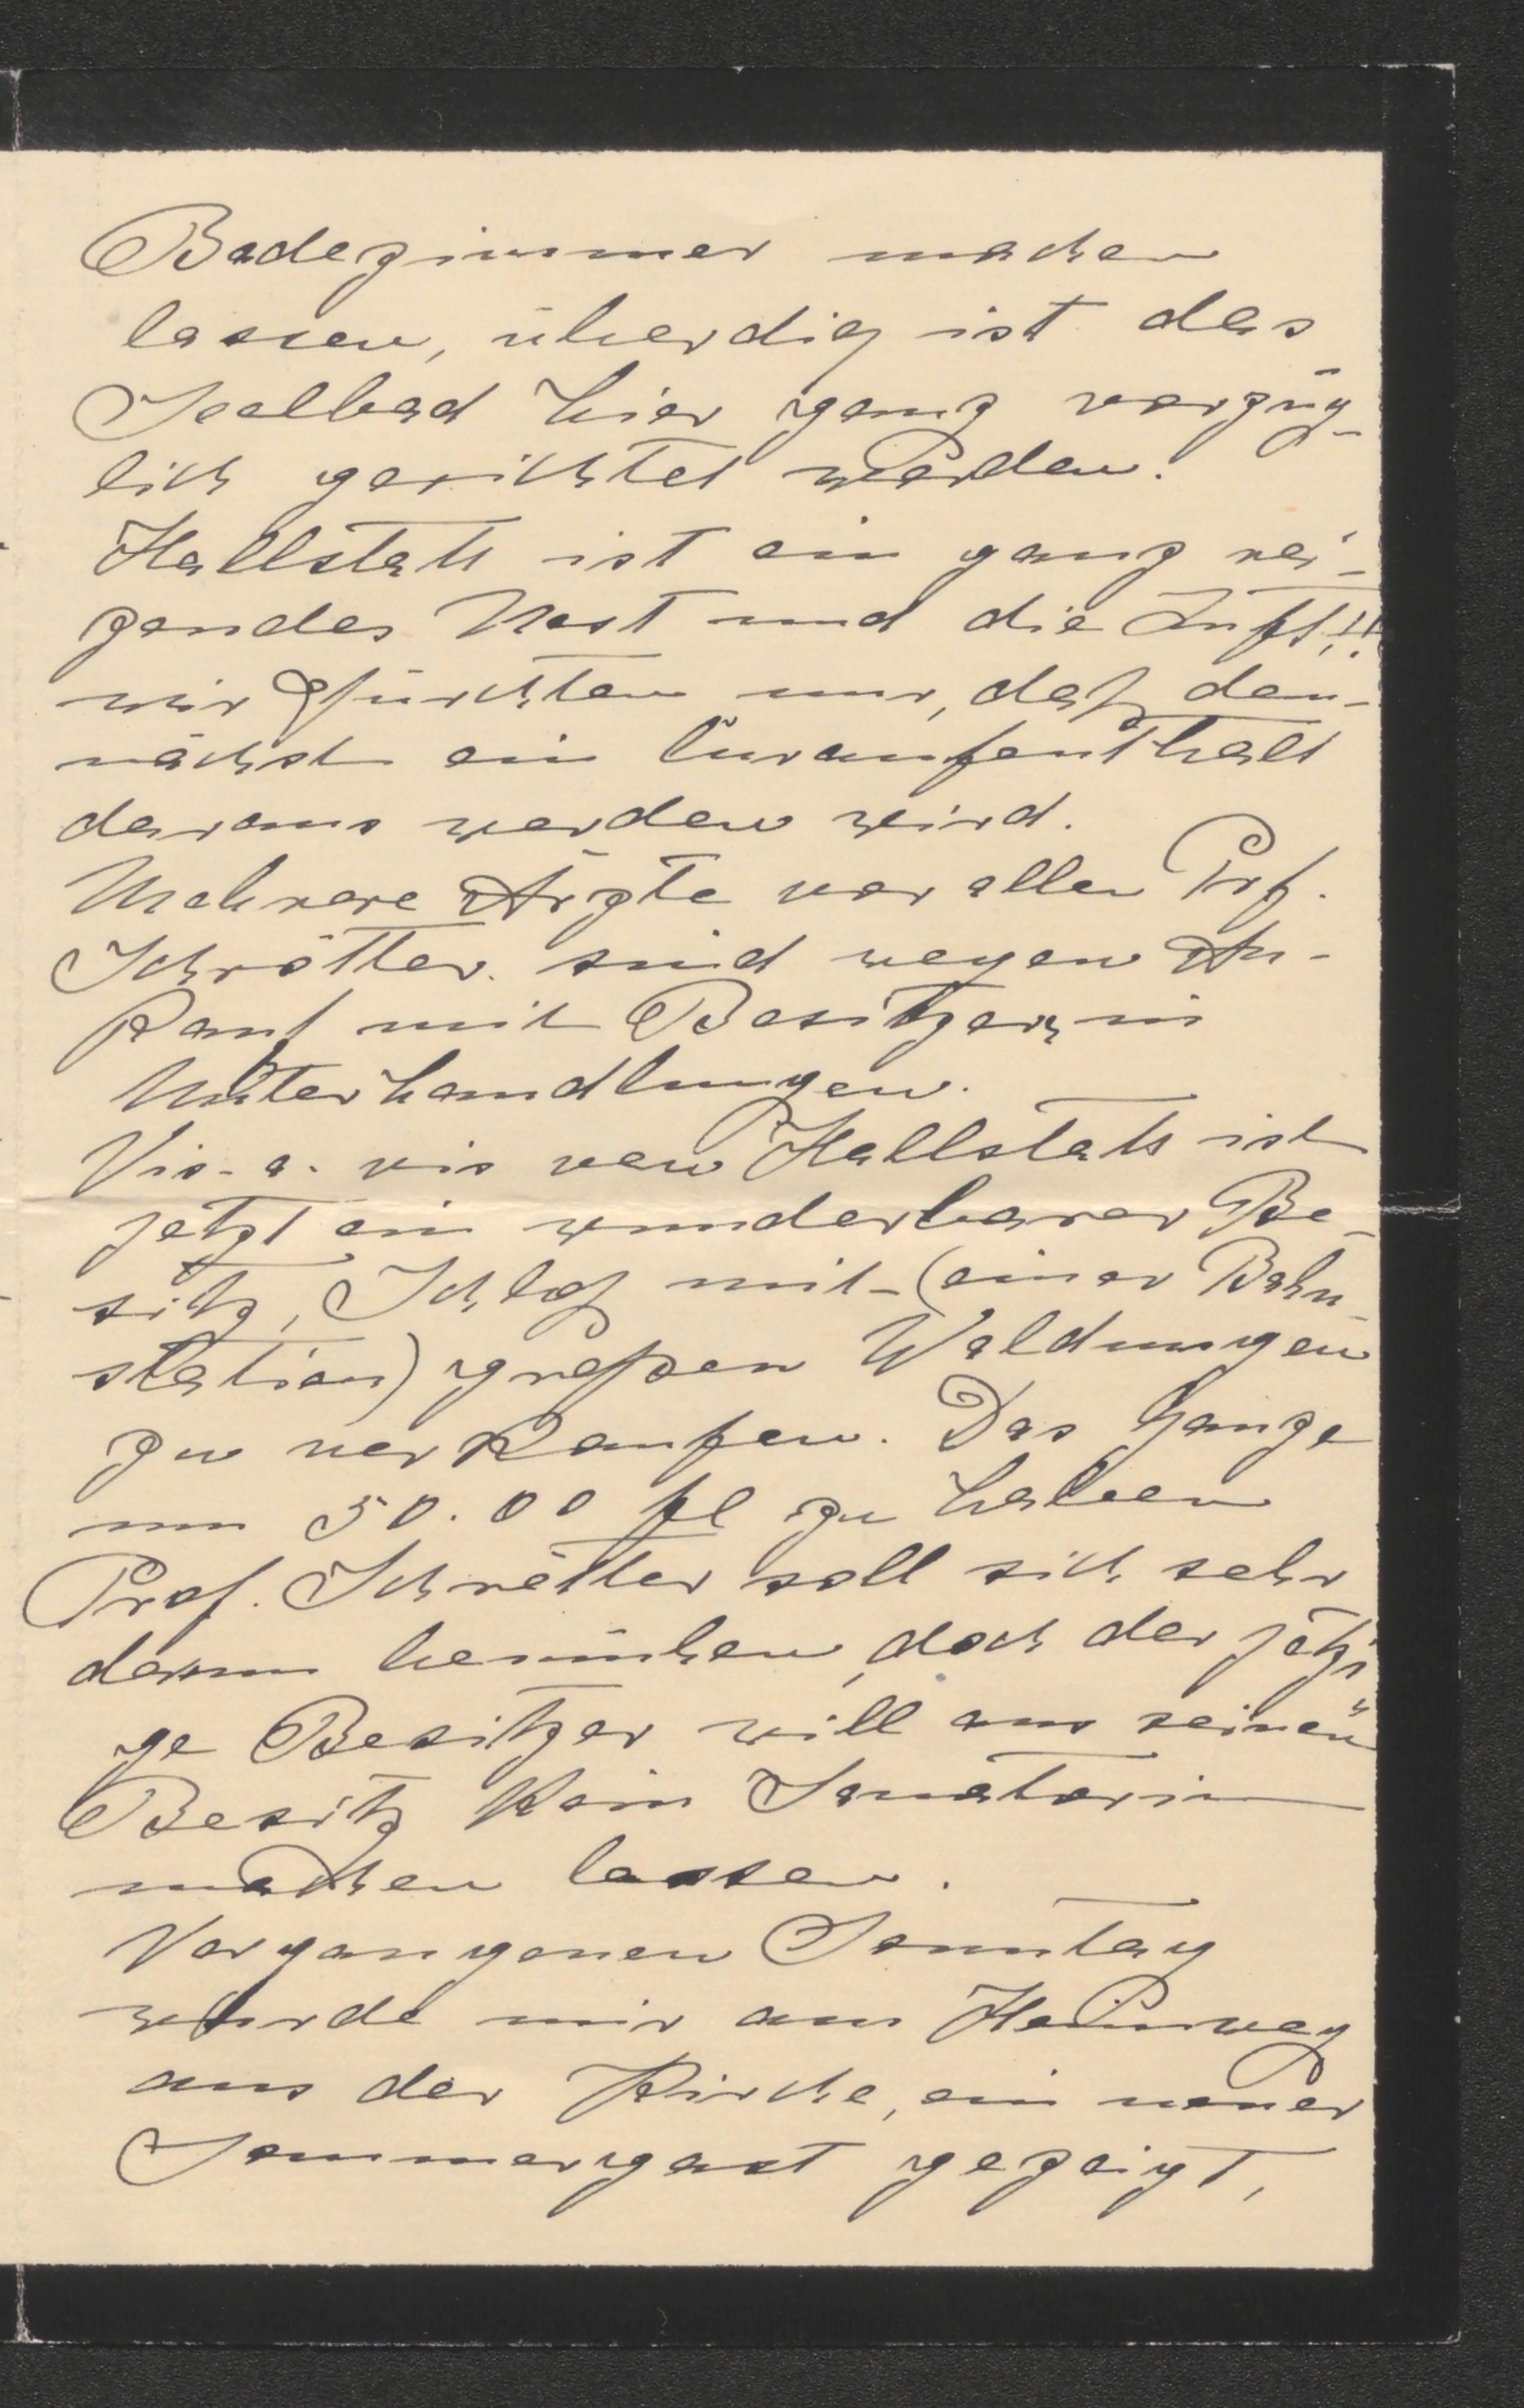 Badezimmer machen
lassen, überdig ist das
Soolbad hier ganz vorzüg-
lich gerichtet worden.
Hallstatt ist ein ganz rei-
zendes Nest und die Luft!!!
wir fürchten nur, daß dem-
nächst ein Curaufenthalt
daraus werden wird.
Mehrere Ärzte vor allen Prf.
Schrötter sind wegen An-
kauf mit Besitzern in
Unterhandlungen.
Vis-a-vis von Hallstatt ist
jetzt ein wunderbarer Be-
sitz, Schloß mit (einer Bahn
station) großen Waldungen
zu verkaufen. Das Ganze
um 50.00 fl zu haben
Prof. Schrötter soll sich sehr
darum bemühen, doch der jetzi
ge Besitzer will aus seinen
Besitz kein Sanatorium
machen lassen.
Vergangenen Sonntag
wurde mir am Heimweg
aus der Kirche, ein neuer
Sommergast gezeigt,